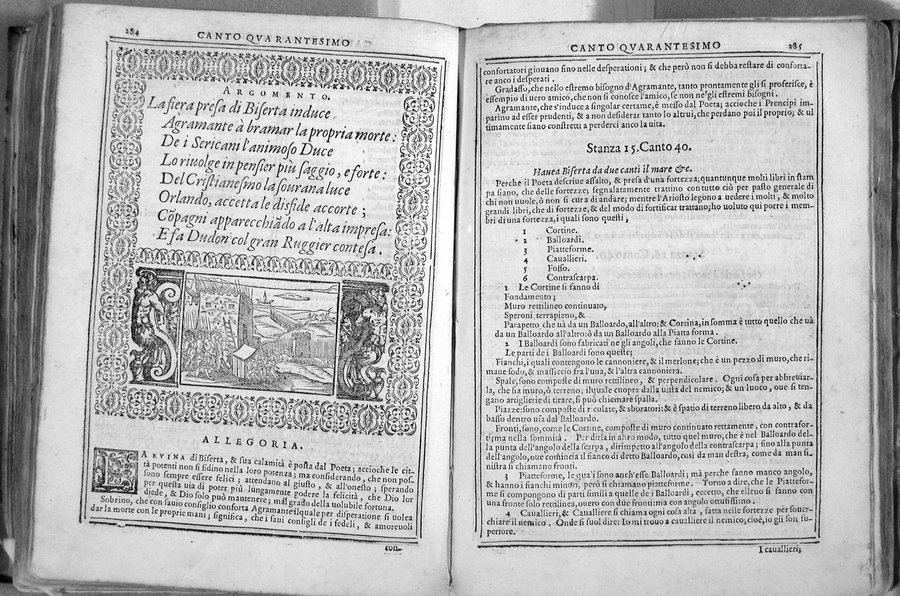 284
CANTO QVARANTESIMO
ARGOMENTO.
La fiera presa di Biserta induce
Agramante à bramar la propria morte:
De i Sericani l'animoso Duce
Lo riuolge in pensier più saggio, e forte:
Del Cristianesmo la sourana luce
Orlando, accetta le disfide accorte;
Cōpagni apparecchiādo a l'alta impresa:
E fa Dudon col gran Ruggier contesa.
ALLEGORIA.
LA RVINA di Biserta, & sua calamità è posta dal Poeta; accioche le cit
tà potenti non si fidino nella loro potenza; ma considerando, che non pos-
sono sempre essere felici; attendano al giusto, & all'onesto; sperando
per questa uia di poter più lungamente podere la felicità, che Dio lor
diede, & Dio solo può mantenere; mal grado della uolubile fortuna.
Sobrino, che con sauio consiglio conforta Agramante ilquale per disperatione si uolea
dar la morte con le proprie mani; significa, che i saui consigli de i fedeli, & amoreuoli
con-
CANTO QVARANTESIMO
285
confortatori giouano fino nelle desperationi; & che però non si debba restare di conforta-
re anco i desperati.
Gradasso, che nello estremo bisogno d'Agramante, tanto prontamente gli si proferisce, è
essempio di uero amico, che non si conosce l'amico, se non ne'gli estremi bisogni.
Agramante, che s'induce a singular certame, è messo dal Poeta; accioche i Prencipi im-
parino ad esser prudenti, & a non desiderar tanto lo altrui, che perdano poi il proprio; & ul
timamente siano constretti a perderci anco la uita.
Stanza 15. Canto 40.
Hauea Biserta da due canti il mare &c.
Perche il Poeta descriue assalto, & presa d'una fortezza, quantunque molti libri in stam
pa siano, che delle fortezze; segnalatamente trattino con tutto ciò per pasto generale di
chi non uuole, ò non si cura di andare; mentre l'Ariosto legono a uedere i molti, & molto
grandi libri, che di fortezze, & del modo di fortificar trattano; ho uoluto qui porre i mem-
bri di una fortezza, i quali sono questi,
1 Cortine.
2 Balloardi.
3 Piatteforme.
4 Cauallieri.
5 Fosso.
6 Contrascarpa.
1 Le Cortine si fanno di
Fondamento;
Muro rettilineo continuato,
Speroni, terrapieno, &
Parapetto che uà da un Balloardo, all'altro: & Cortina, in somma è tutto quello che uà
da un Balloardo all'altro: ò da un Balloardo alla Piatta forma.
2 I Balloardi sono fabricati ne gli angoli, che fanno le Cortine.
Le parti de i Balloardi sono queste;
Fianchi, i quali contengono le cannoniere, & il merlone; che è un pezzo di muro, che ri-
mane sodo, & massiccio fra l'una, & l'altra cannoniera.
Spale, sono composte di muro rettilineo, & perpendicolare. Ogni cosa per abbreuiar-
la, che sia muro, ò terreno; ilquale cuopra dalla uista del nemico; & un luoco, oue si ten-
gano artiglierie di tirare, si può chiamare spalla.
Piazze: sono composte di & aboratori: & è spatio di terreno libero da alto, & da
basso dentro uia dal Balloardo.
Fronti, sono, come le Cortine, composte di muro continuato rettamente, con contrafor-
ti; ma nella sommità. Per dirla in altro modo, tutto quel muro, che è nel Balloardo del-
la punta dell'angolo della scarpa, dirimpetto all'angolo della contrascarpa; fino alla punta
dell'angolo, oue comincia il fianco di detto Balloardo, così da man destra, come da man si-
nistra si chiamano fronti.
3 Piatteforme, le quali sono anch'esse Balloardi; mà perche fanno manco angolo,
& hanno i fianchi minori, però si chiamano piatteforme. Torno a dire, che le Piattefor
me si compongono di parti simili a quelle de i Balloardi, eccetto, che elleno si fanno con
una fronte solo rettilinea, ouero con due fronti; ma con angolo ottusissimo.
4 Cauallieri, & Cavalliere si chiama ogni cosa alta, fatta nelle fortezze per souer-
chiare il nemico. Onde si suol dire: Io mi trouo a caualliere il nemico; cioè, io gli son su-
periore.
I cauallieri;